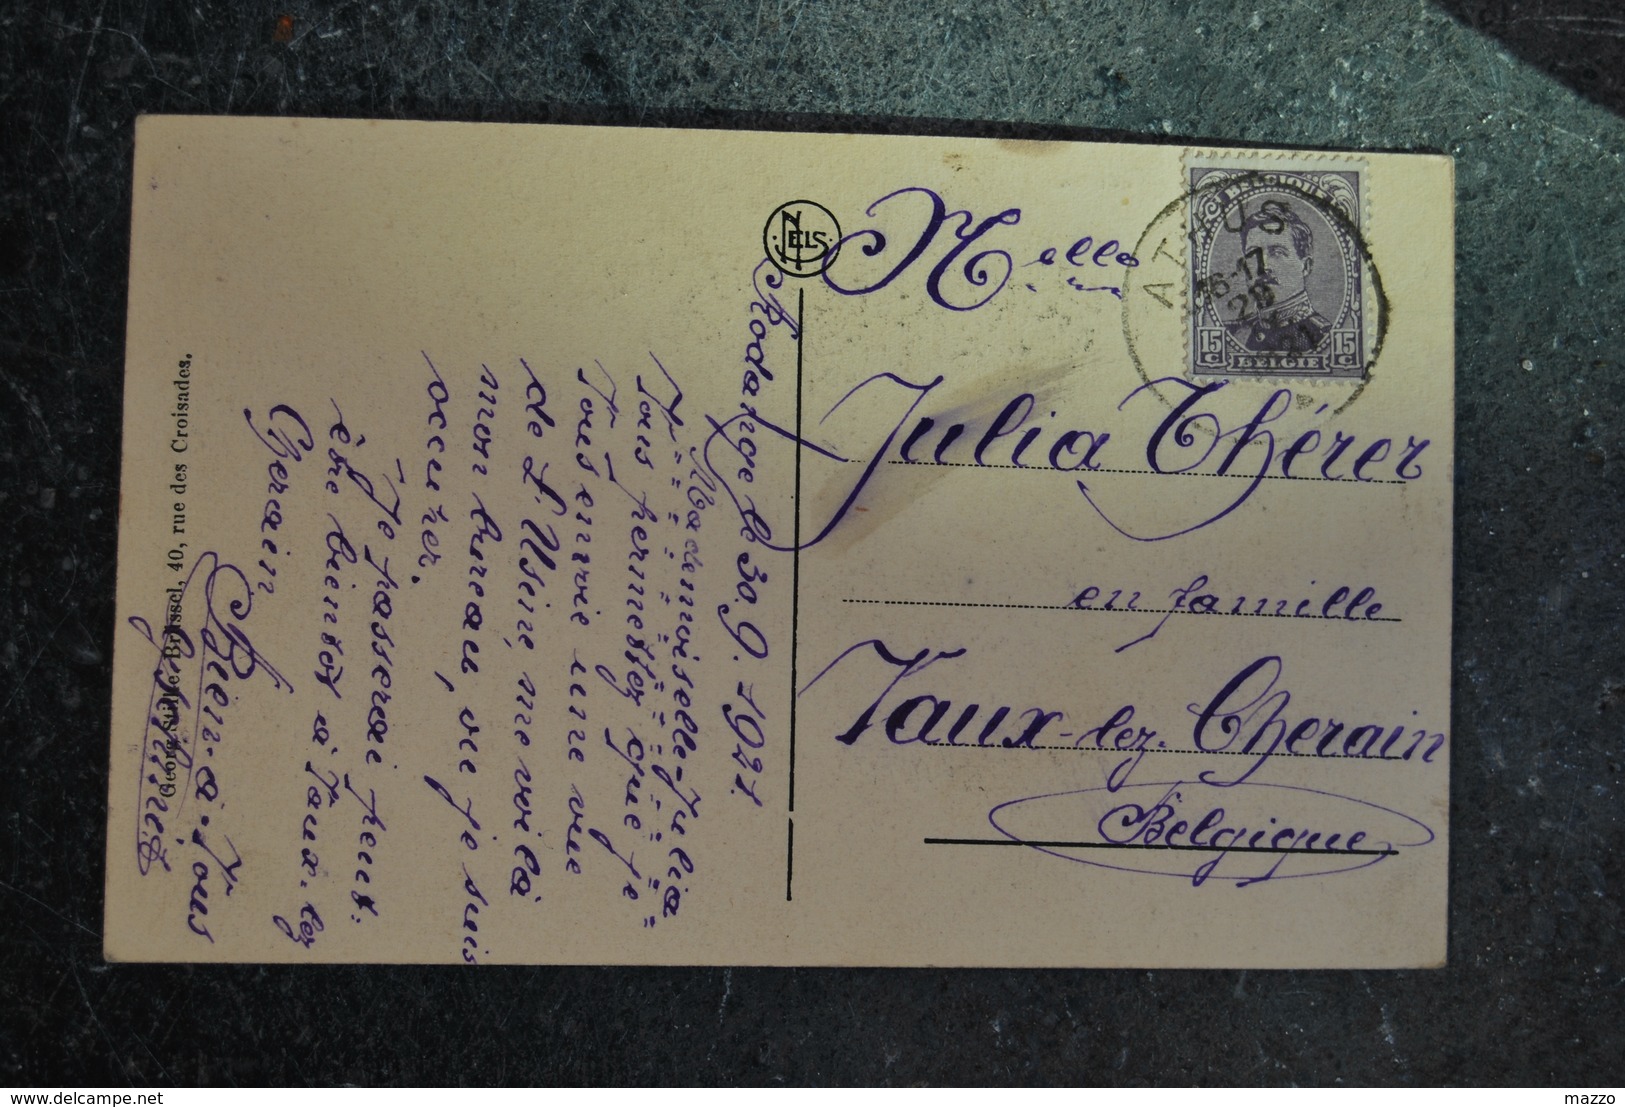 Rodange le 30.9.1921.
Mademoiselle Julia
Vous permettez que je
Vous envoie une vue
de l'Usine, me voilà
mon bureau, où je suis
occuper.
Je passerai peut-
être bientôt à Vaux-lez
Cherain
Bien-à-Vous
NELS
Melle
Julia Thérer
en famille
Vaux-lez-Cherain
Belgique
BELGIQUE
15 C
15 C
BELGIE
ATHUS
16-17
28
21
40, rue des Croisades.
delcampe.net
mazzo